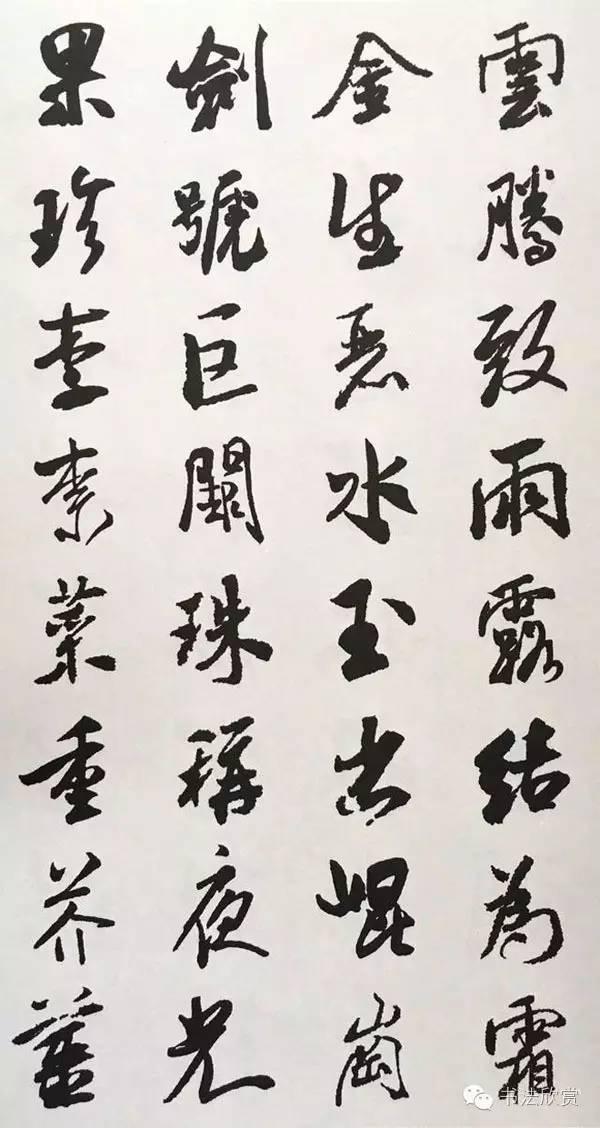 雲騰致雨露結為霜
金生麗水玉出崐崗
劍號巨闕珠稱夜光
果珍李柰菜重芥薑
书法欣赏